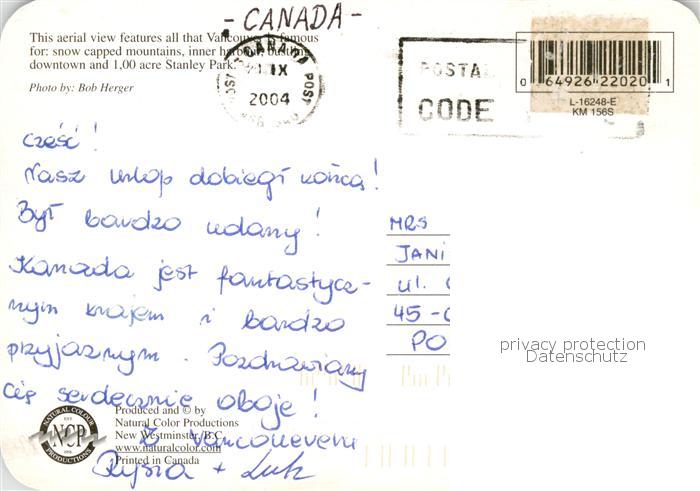 - CANADA -
This aerial view features all that Vancouver is famous
for: snow capped mountains, inner harbour, bustling
downtown and 1,00 acre Stanley Park.
Photo by: Bob Herger
CANADA POST
IX
2004
POSTAL
CODE
0 64926 22020 1
L-16248-E
KM 156S
cześć!
Nasz urlop dobiegł końca!
Był bardzo udany!
Kanada jest fantastycz-
nym krajem i bardzo
przyjaznym. Pozdrawiamy
Cię serdecznie oboje!
z Vancouveru
Rysia + Luk
MRS
JANI
ul.
45-
PO
privacy protection
Datenschutz
NATURAL COLOUR
NCP
PRODUCTIONS
Produced and © by
Natural Color Productions
New Westminster, B.C.
www.naturalcolor.com
Printed in Canada